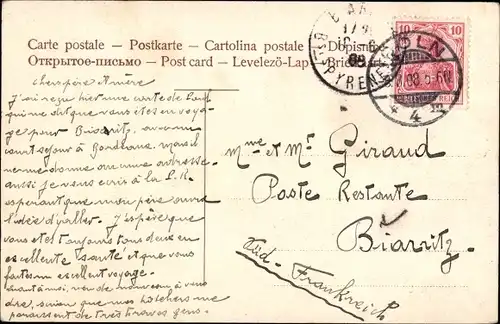 Carte postale — Postkarte — Cartolina postale — Dopisnice
Открытое-письмо — Post card — Levelező-Lap — Brief
10 10
CÖLN
08.5-6N
4
REICH
PYRENEES
08
cher père & mère
J'ai reçu hier une carte de
qui me dit que vous êtes en voya-
ge pour Biarritz, avec un
court séjour à Bordeaux, mais il
ne me donne aucune adresse.
aussi je vous écris à la P.R.
espérant que mon père aura
l'idée d'y aller. J'espère que
vous êtes toujours tous deux en
excellente santé et que vous
faites un excellent voyage.
Quant à moi, rien de nouveau à vous
dire, sinon que mes hôteliers me
paraissent de très braves gens.
Mme et Mr Giraud
Poste Restante
Biarritz
Süd-Frankreich